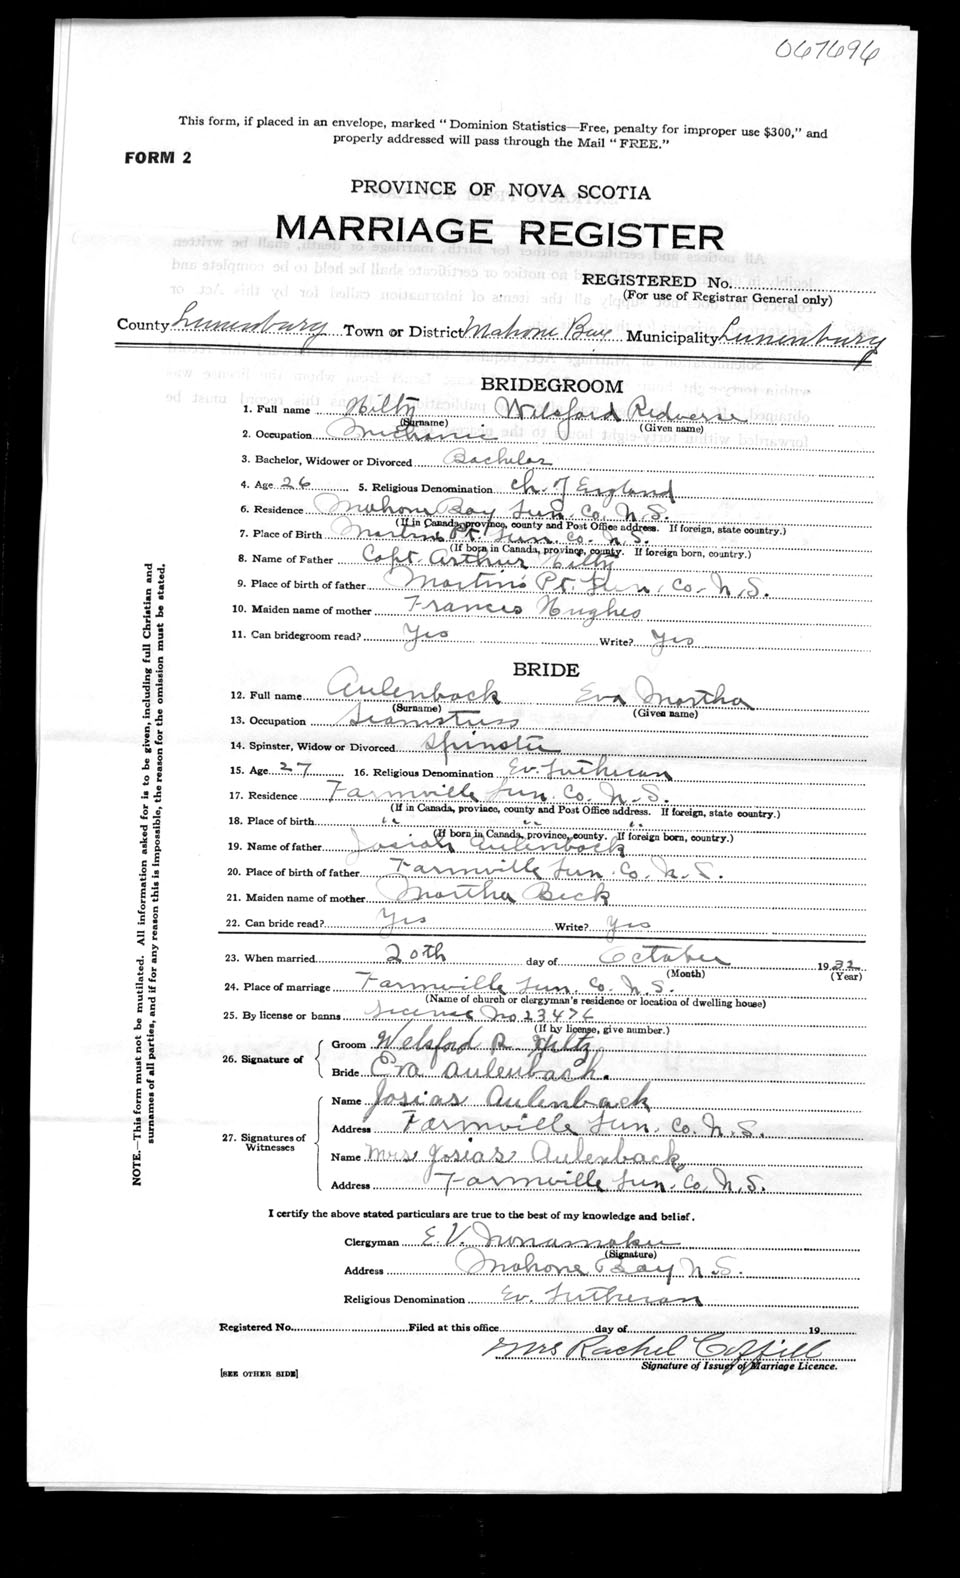 067696
This form, if placed in an envelope, marked "Dominion Statistics—Free, penalty for improper use $300," and
properly addressed will pass through the Mail "FREE."
FORM 2
PROVINCE OF NOVA SCOTIA
MARRIAGE REGISTER
REGISTERED No.
(For use of Registrar General only)
County Lunenburg Town or District Mahone Bay Municipality Lunenburg
BRIDEGROOM
1. Full name Hilty Welsford Redverse
(Surname) (Given name)
2. Occupation Mechanic
3. Bachelor, Widower or Divorced Bachelor
4. Age 26 5. Religious Denomination Ch. of England
6. Residence Mahone Bay Lun. Co. N.S.
(If in Canada, province, county and Post Office address. If foreign, state country.)
7. Place of Birth Martins Pt. Lun. Co. N.S.
(If born in Canada, province, county. If foreign born, country.)
8. Name of Father Capt. Arthur Hilty
9. Place of birth of father Martins Pt. Lun. Co. N.S.
10. Maiden name of mother Frances Hughes
11. Can bridegroom read? Yes Write? Yes
BRIDE
12. Full name Aulenback Eva Martha
(Surname) (Given name)
13. Occupation Seamstress
14. Spinster, Widow or Divorced Spinster
15. Age 27 16. Religious Denomination Ev. Lutheran
17. Residence Farmville Lun. Co. N.S.
(If in Canada, province, county and Post Office address. If foreign, state country.)
18. Place of birth " " "
(If born in Canada, province, county. If foreign born, country.)
19. Name of father Josiah Aulenback
20. Place of birth of father Farmville Lun. Co. N.S.
21. Maiden name of mother Martha Beck
22. Can bride read? Yes Write? Yes
23. When married 20th day of October 1932
(Month) (Year)
24. Place of marriage Farmville Lun. Co. N.S.
(Name of church or clergyman's residence or location of dwelling house)
25. By license or banns License No 23476
(If by license, give number.)
26. Signature of
Groom Welsford R Hiltz
Bride Eva Aulenbach.
27. Signatures of Witnesses
Name Josias Aulenback
Address Farmville Lun. Co. N.S.
Name Mrs Josias Aulenback
Address Farmville Lun. Co. N.S.
I certify the above stated particulars are true to the best of my knowledge and belief.
Clergyman E. V. Nonamaker
(Signature)
Address Mahone Bay N.S.
Religious Denomination Ev. Lutheran
Registered No. Filed at this office day of 19
Mrs Rachel
Signature of Issuer of Marriage Licence.
[SEE OTHER SIDE]
NOTE.—This form must not be mutilated. All information asked for is to be given, including full Christian and
surnames of all parties, and if for any reason this is impossible, the reason for the omission must be stated.